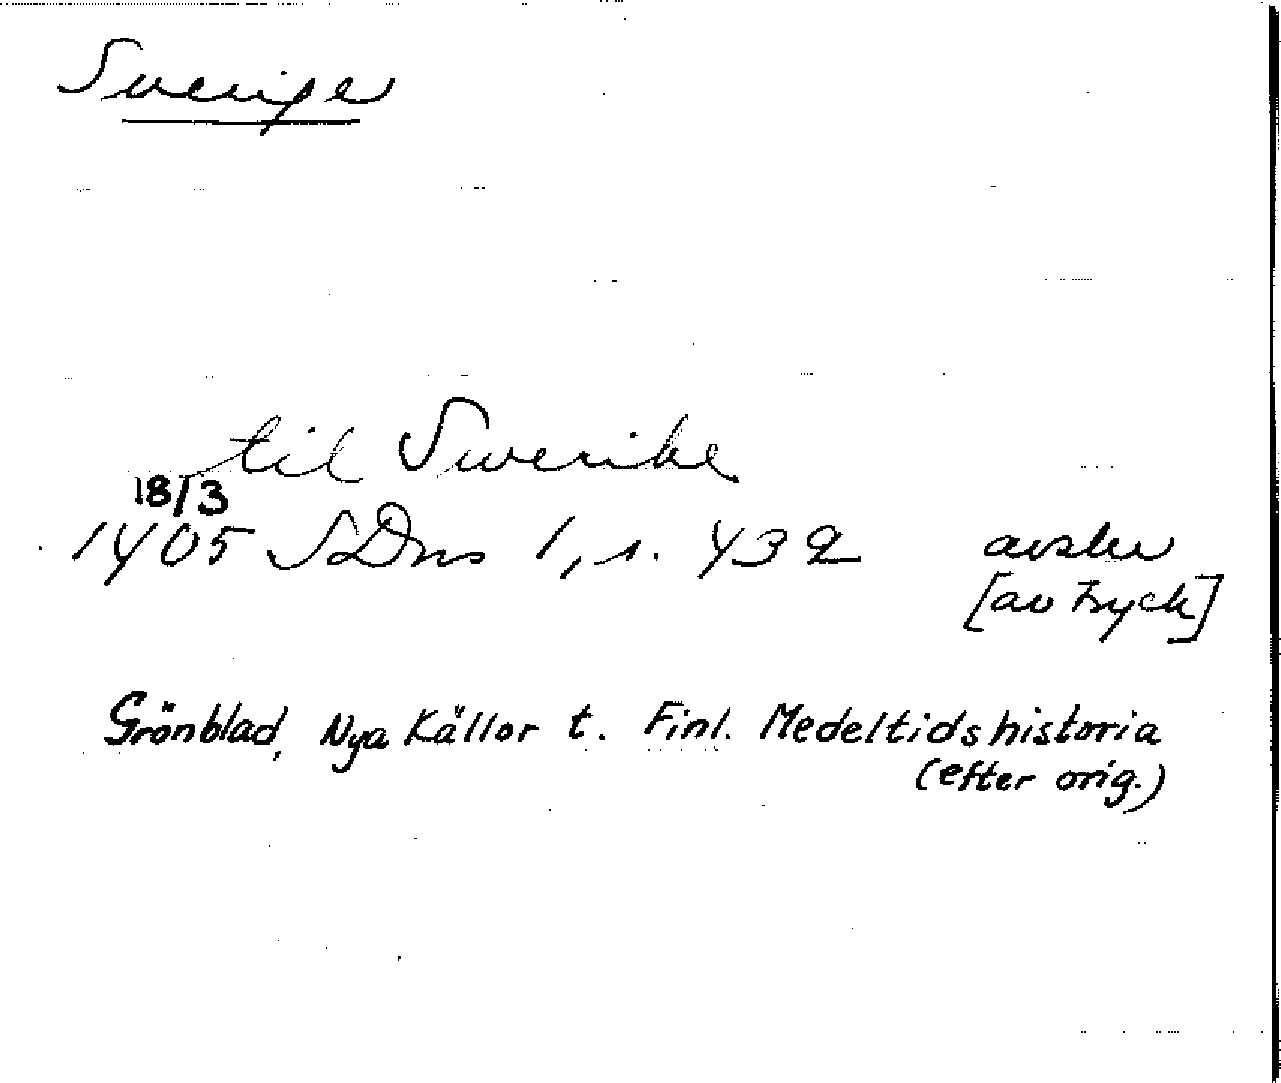 Sverige
til Swerike
18/3
1405 SDns 1, s. 432 avskr
[av tryck]
Grönblad, Nya Källor t. Finl. Medeltidshistoria
(efter orig.)